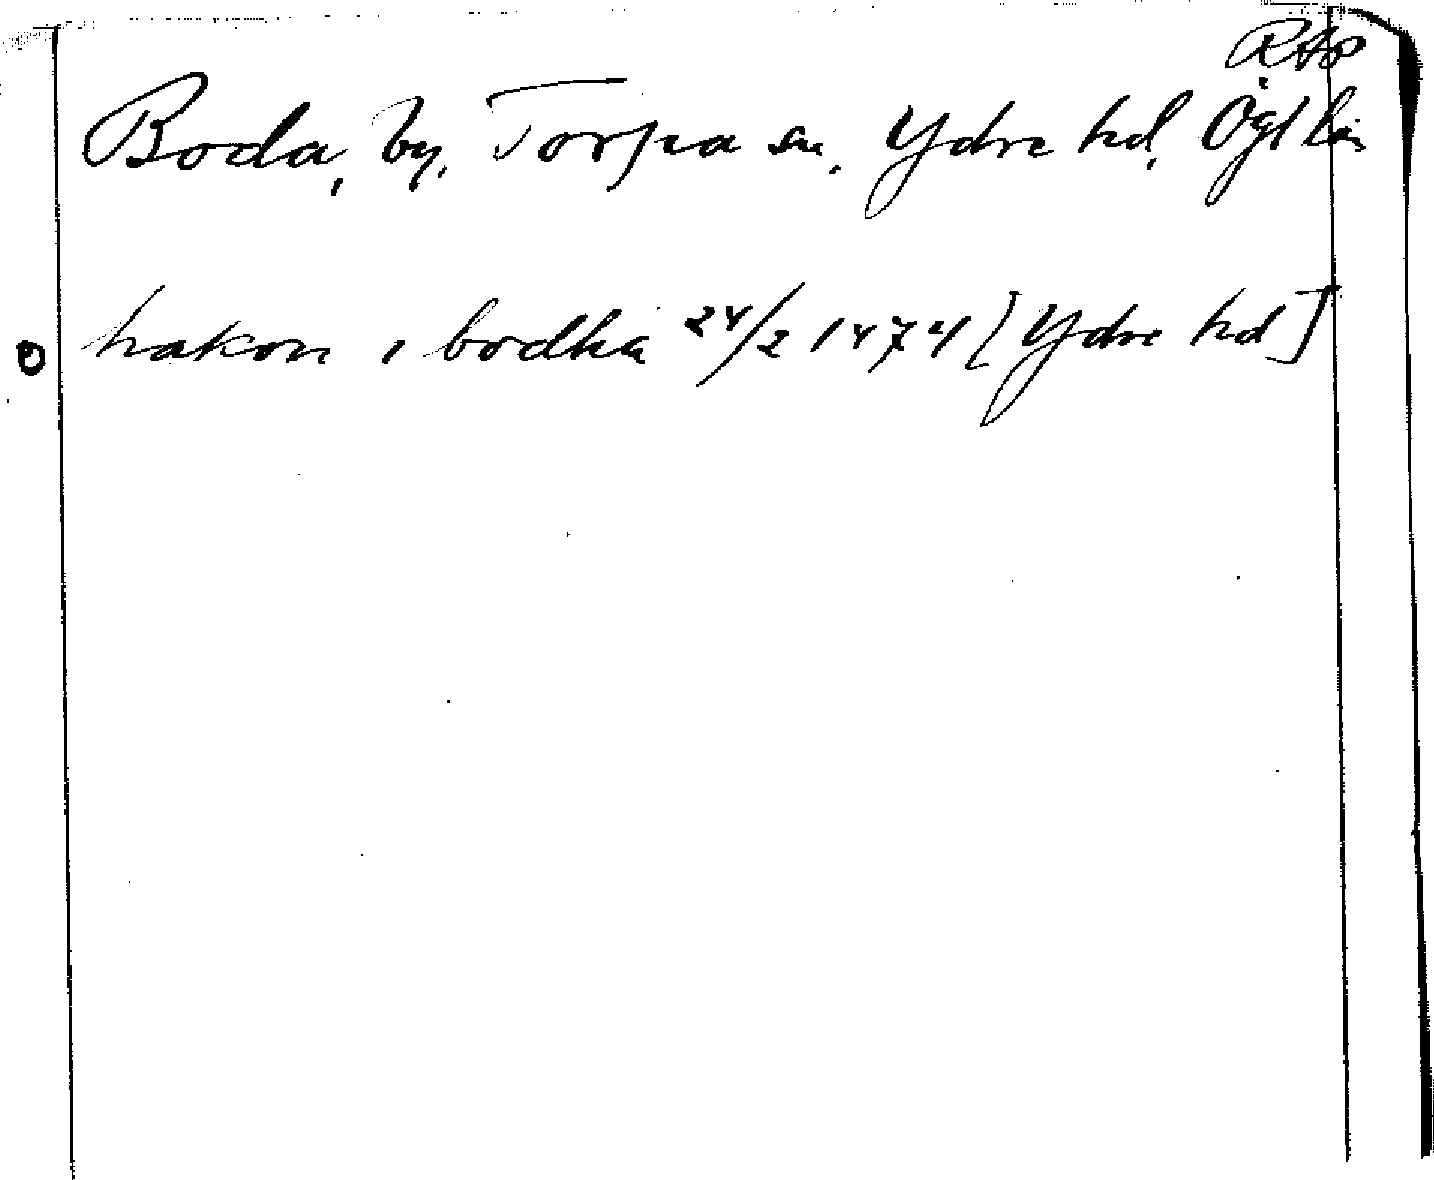 RAp
Boda, by, Torpa sn. Ydre hd, Ögl län
hakon i bodha 24/2 1474 [Ydre hd]